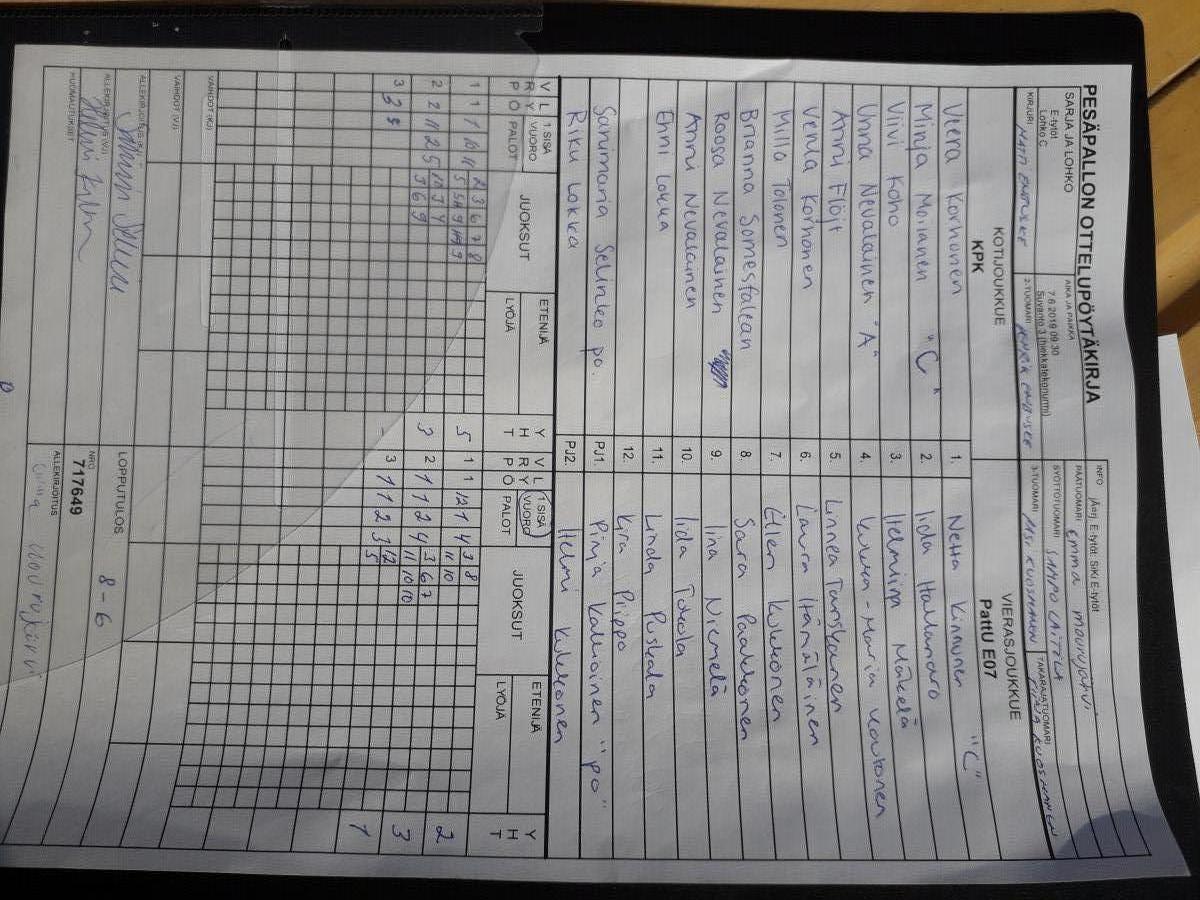 PESÄPALLON OTTELUPÖYTÄKIRJA
SARJA JA LOHKO
E-tytöt
Lohko C
AIKA JA PAIKKA
7.6.2019 09:30
Suvanto 3 (hiekkatekonurmi)
INFO jAarj. E-tytöt: SiKi E-tytöt
PÄÄTUOMARI Emma Mourujärvi
SYÖTTÖTUOMARI
KIRJURI
2-TUOMARI
3-TUOMARI
TAKARAJATUOMARI
KOTIJOUKKUE
KPK
VIERASJOUKKUE
PattU E07
Veera Korhonen 1. Netta Kinnunen "C"
Minja Moilanen "C" 2. Iida
Viivi Koho 3. Helmiina Mäkelä
Unna Nevalainen "A" 4.
Anni Flöjt 5. Linnea Tanskanen
Venla Korhonen 6. Laura Hämäläinen
Milla Tolonen 7. Ellen Kukkonen
Brianna Somesfalean 8. Sara Paakkonen
Roosa Nevalainen 9. Iina Niemelä
Anni Nevalainen 10. Iida Tokola
Enni Lokka 11. Linda Ruskala
12. Kira Piippo
Sanimaria Selinko po. PJ1. Pinja Kakkoinen "po"
Riku Lokka PJ2. Helmi Kukkonen
V L
R Y
P Ö
1 SISÄ
VUORO
PALOT
JUOKSUT
ETENIJÄ
LYÖJÄ
Y
H
T
V L
R Y
P Ö
1 SISÄ
VUORO
PALOT
JUOKSUT
ETENIJÄ
LYÖJÄ
Y
H
T
1 1 1 10 11 2 3 6 7 8 5 1 1 12 1 4 3 8 2
2 2 11 2 5 10 3 4 3 2 1 1 2 4 3 6 7 3
3 6 9 11 10 10
3 3 5 - 3 1 1 2 3 12 1
5
VAIHDOT (KJ)
VAIHDOT (VJ)
LOPPUTULOS 8-6
ALLEKIRJOITUS (VJ)
NRO
717649
HUOMAUTUKSET
ALLEKIRJOITUS